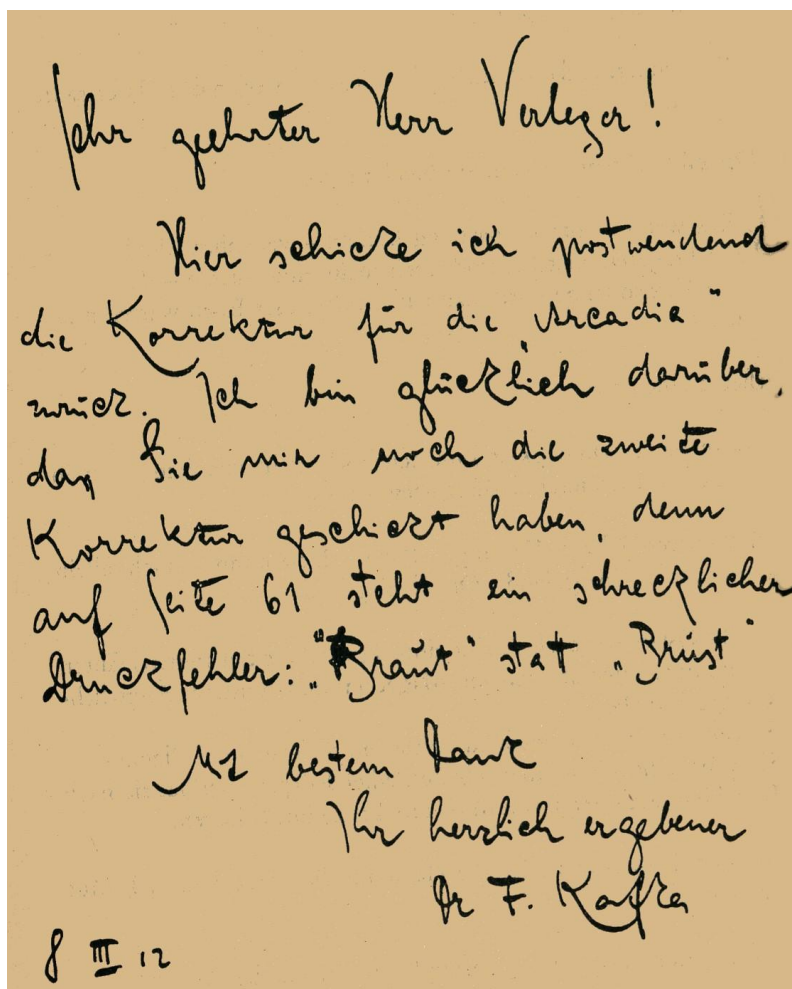 Sehr geehrter Herr Verleger!
Hier schicke ich postwendend
die Korrektur für die „Arcadia“
zurück. Ich bin glücklich darüber,
daß Sie mir noch die zweite
Korrektur geschickt haben, denn
auf Seite 61 steht ein schrecklicher
Druckfehler: „Braut“ statt „Brust“
Mit bestem Dank
Ihr herzlich ergebener
Dr F. Kafka
8 III 12